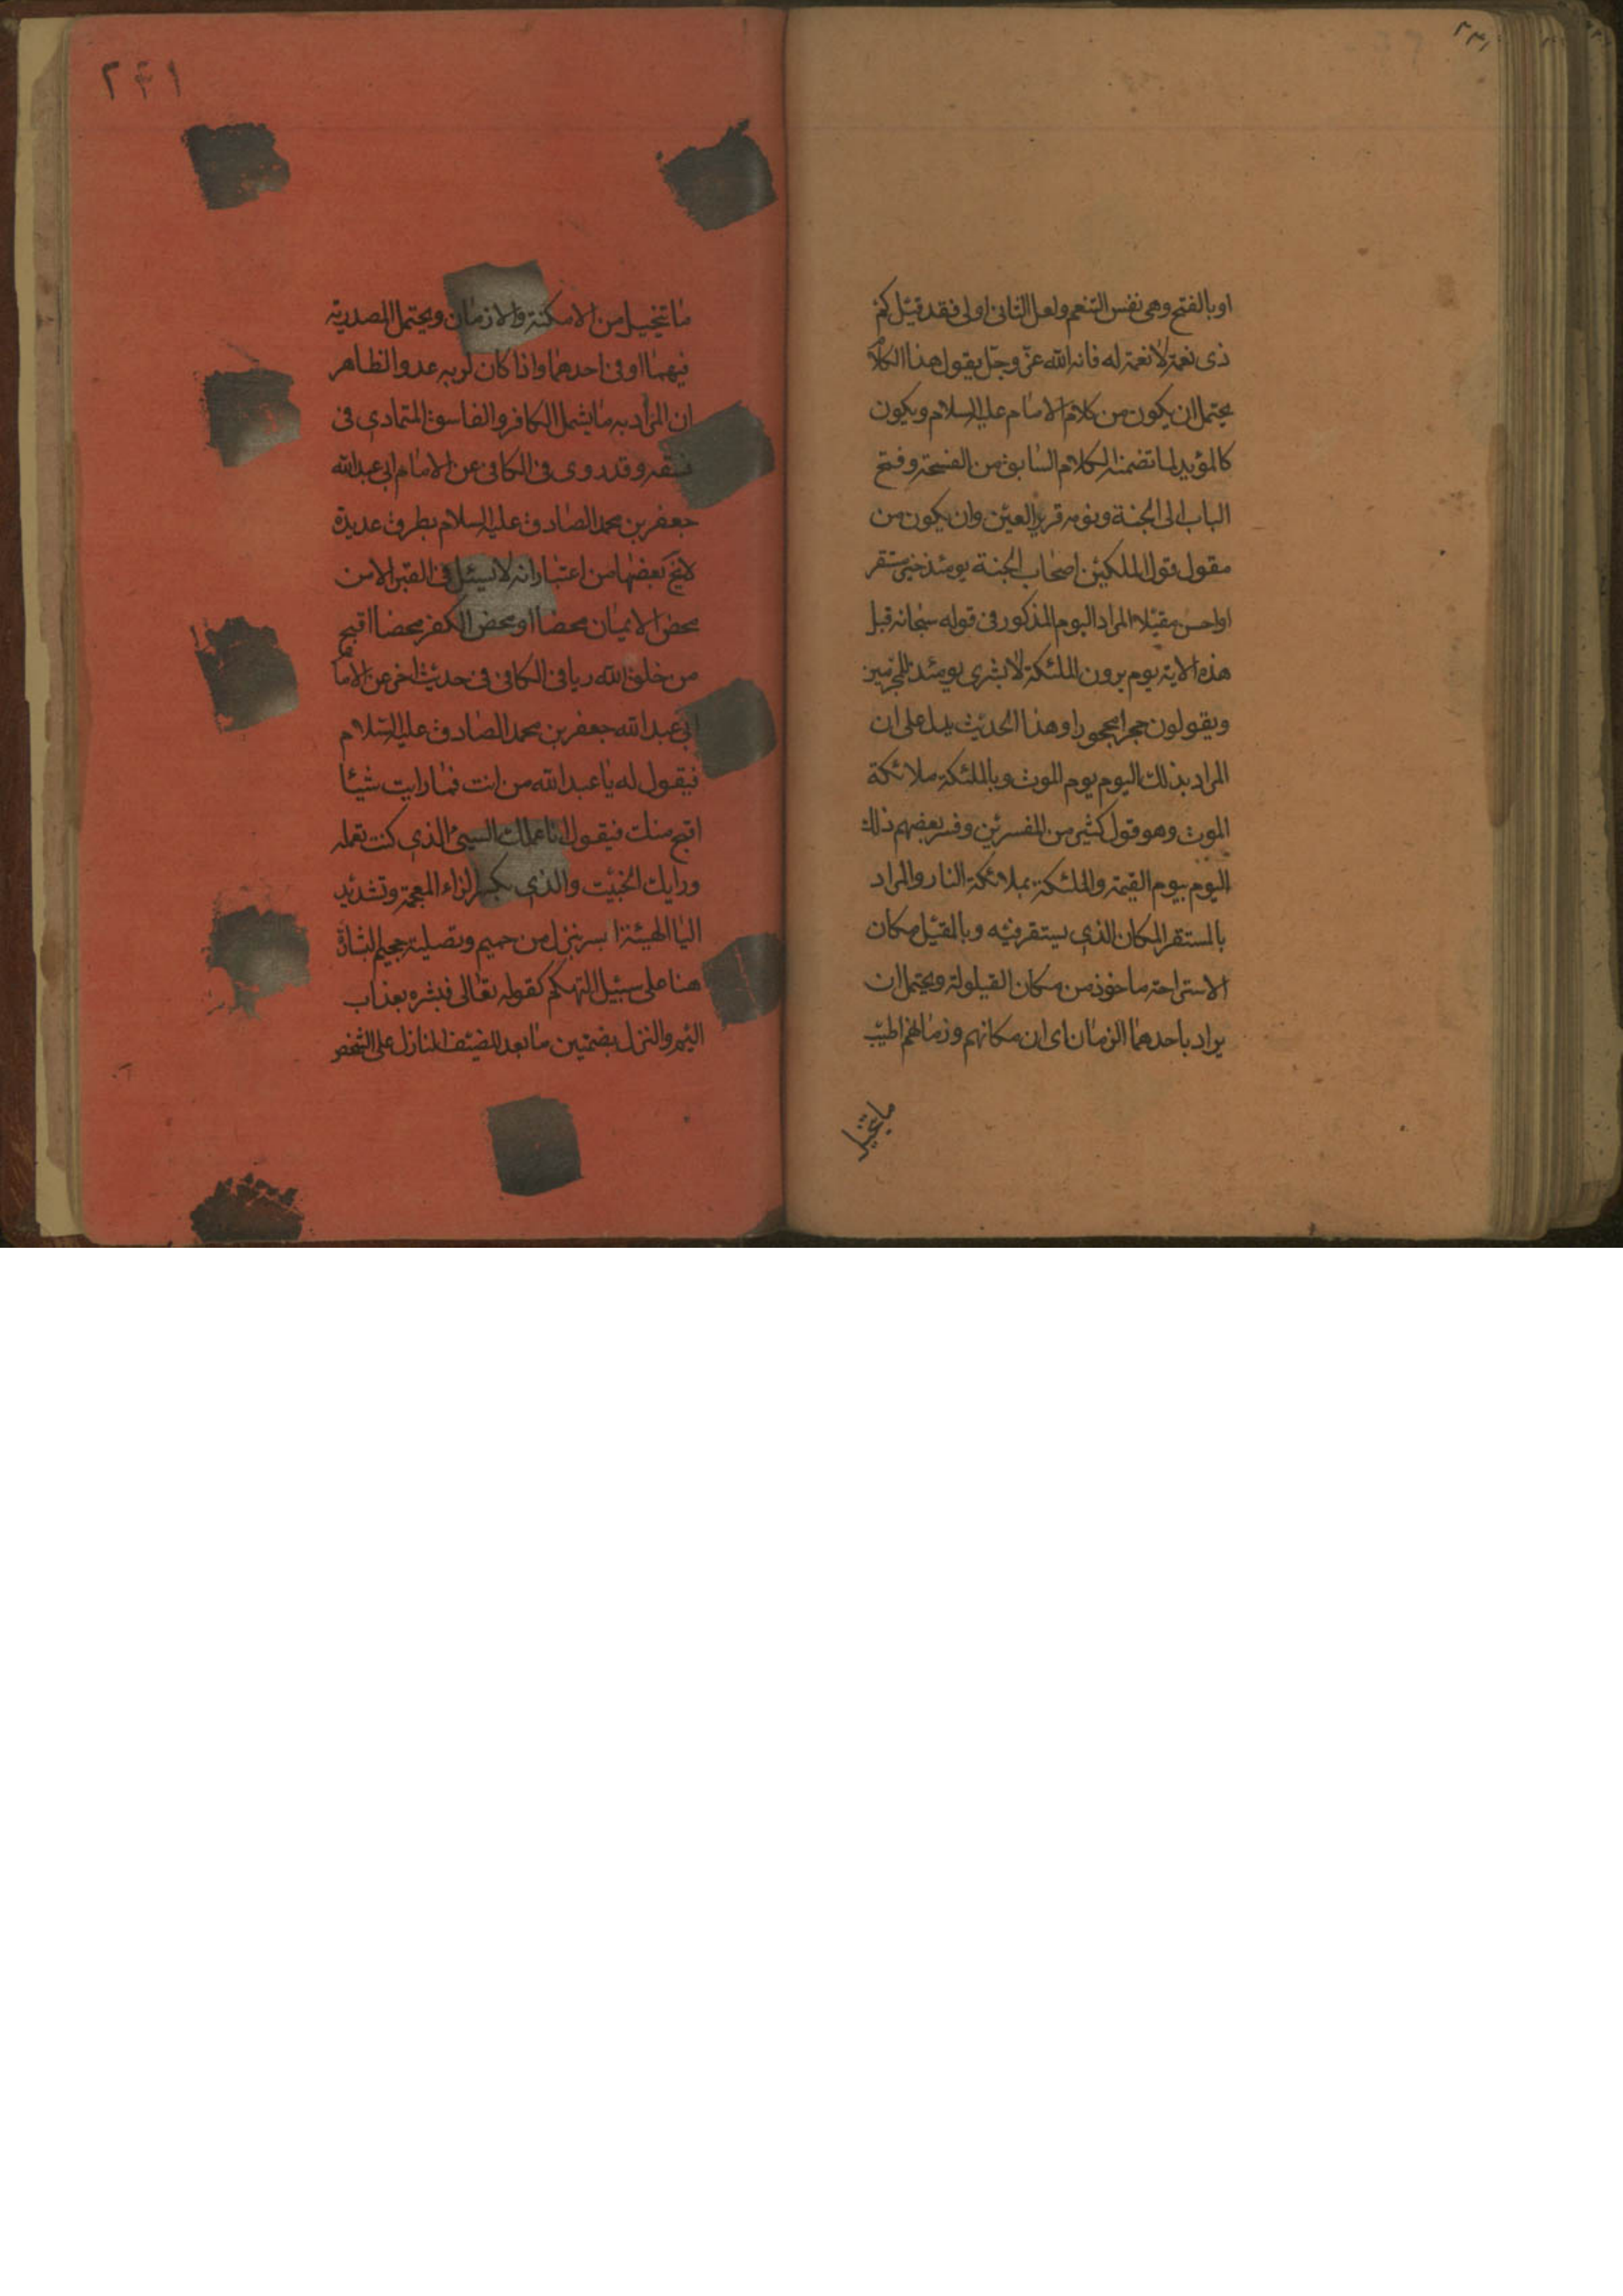 اوبالفتح وهى نفس التنعم ولعل الثانى اولى فقد قيل كم
ذى نعمة لا نعمة له فانه الله عز وجل يقول هذا الكلام
يحتمل ان يكون من كلام الامام عليه السلام ويكون
كالمؤيد لما تضمنه الكلام السابق من الفسحة وفتح
الباب الى الجنة ونومه قرير العين وان يكون من
مقول قول الملكين اصحاب الجنة يومئذ خير مستقر
او احسن مقيلا المراد اليوم المذكور فى قوله سبحانه قبل
هذه الاية يوم يرون الملئكة لا بشرى يومئذ للمجرمين
ويقولون حجرا محجورا وهذا الحديث يدل على ان
المراد بذلك اليوم يوم الموت وبالملئكة ملائكة
الموت وهو قول كثير من المفسرين وفسر بعضهم ذلك
اليوم بيوم القيمة والملئكة بملائكة النار والمراد
بالمستقر المكان الذى يستقر فيه وبالمقيل مكان
الاستراحة ماخوذ من مكان القيلولة ويحتمل ان
يراد باحدهما الزمان اى ان مكانهم وزمانهم اطيب
ما يتخيل
٢٤١
ما يتخيل من الامكنة والازمان ويحتمل المصدرية
فيهما او فى احدهما واذا كان لربه عدوا الظاهر
ان المراد به ما يشمل الكافر والفاسق المتمادى فى
فسقه وقد روى فى الكافى عن الامام ابى عبدالله
جعفر بن محمد الصادق عليه السلام بطرق عديدة
بعضها من اعتبار انه لا يسئل فى القبر الا من
محض الايمان محضا او محض الكفر محضا اقبح
من خلق الله ريا فى الكافى فى حديث اخر عن الامام
ابى عبد الله جعفر بن محمد الصادق عليه السلام
فيقول له يا عبد الله من انت فما رايت شيئا
اقبح منك فيقول انا عملك السيئ الذى كنت تعمله
ورايك الخبيث والذى بكسر الزاء المعجمة وتشديد
اليا الهيئة ابشر بنزل من حميم وتصلية جحيم البشارة
هنا على سبيل التهكم كقوله تعالى فبشره بعذاب
اليم والنزل بضمتين ما يعد للضيف النازل على الشخص